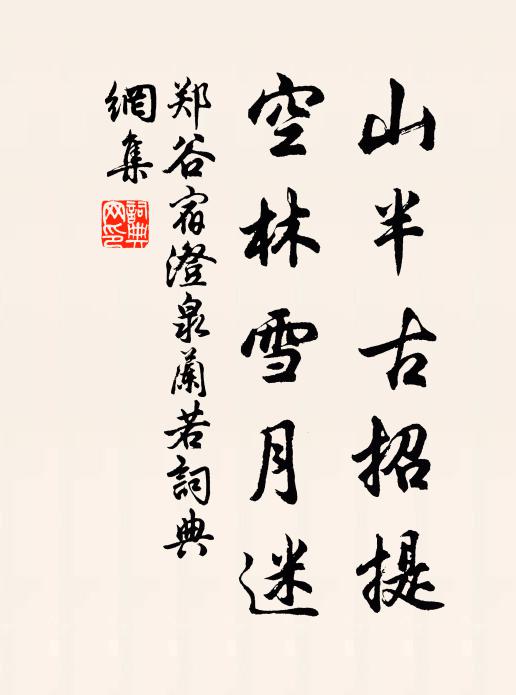 山半古招提
空林雪月迷
郑谷宿澄泉蘭若詞典
網集
詞典網印